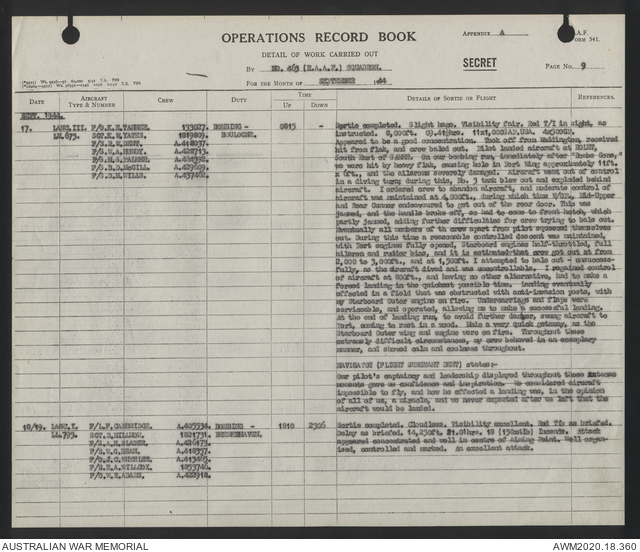 OPERATIONS RECORD BOOK
APPENDIX A
R.A.F. FORM 541.
DETAIL OF WORK CARRIED OUT
BY NO. 463 (R.A.A.F.) SQUADRON.
SECRET
PAGE No. 9
FOR THE MONTH OF SEPTEMBER 1944
DATE AIRCRAFT TYPE & NUMBER CREW DUTY TIME UP DOWN DETAILS OF SORTIE OR FLIGHT REFERENCES.
SEPT. 1944.
17. LANC.III. F/O K.E. TANNER. 133027. BOMBING - 0815 -
LM.675. SGT. E. YATES. 1819809. BOULOGNE.
A.418037.
A.428713.
Sortie completed. Slight haze. Visibility fair. Red T/I in sight, as
instructed. 8,000ft. 09.41½hrs. 11x1,000AP.USA. 4x500GP.
Appeared to be a good concentration. Took off from Waddington, received
hit from flak, and crew baled out. Pilot landed aircraft at
South East of On our bombing run, immediately after "Bombs Gone,"
we were hit by heavy flak, causing hole in Port wing approximately 11ft.
x 6ft., and the ailerons severely damaged. Aircraft went out of control
in a diving turn; during this, No. 3 tank blew out and exploded behind
aircraft. I ordered crew to abandon aircraft, and moderate control of
aircraft was maintained at 4,000ft., during which time Mid-Upper
and Rear Gunner endeavoured to get out of the rear door. This was
jammed, and the handle broke off, so had to come to front hatch, which
partly jammed, adding further difficulties for crew trying to bale out.
Eventually all members of the crew apart from pilot squeezed themselves
out. During this time a reasonable controlled descent was maintained,
with Port engines fully opened, Starboard engines half-throttled, full
aileron and rudder bias, and it is estimated that crew got out at from
2,000 to 3,000ft., and at 1,500ft. I attempted to bale out - unsuccess-
fully, as the aircraft dived and was uncontrollable. I regained control
of aircraft at 800ft., and having no other alternative, had to make a
forced landing in the quickest possible time. Landing eventually
effected in a field that was obstructed with anti-invasion posts, with
my Starboard Outer engine on fire. Undercarriage and flaps were
serviceable, and operated, allowing us to make a successful landing.
At the end of landing run, to avoid further danger, swung aircraft to
Port, coming to rest in a wood. Made a very quick getaway, as the
Starboard Outer wing and engine were on fire. Throughout these
extremely difficult circumstances, my crew behaved in an exemplary
manner, and showed calm and coolness throughout.
NAVIGATOR (FLIGHT SERGEANT DENT) states:-
Our pilot's captaincy and leadership displayed throughout these intense
moments gave us confidence and inspiration. We considered aircraft
impossible to fly, and how he effected a landing was, in the opinion
of all of us, a miracle, and we never expected after we left that the
aircraft would be landed.
18/19. LANC.I. F/L.F. CAMBRIDGE. A.405534. BOMBING - 1810 2306
LL.795. 1821731. BREMERHAVEN.
A.418357.
F/S.E.A. WILLCOX. 1853746.
F/S.W.E. ADAMS. A.428918.
Sortie completed. Cloudless. Visibility excellent. Red TIs as briefed.
Delay as briefed. 14,250ft. 21.01hrs. 18 (150x4lb) Incents. Attack
appeared concentrated and well in centre of Aiming Point. Well organ-
ised, controlled and marked. An excellent attack.
AUSTRALIAN WAR MEMORIAL
AWM2020.18.360